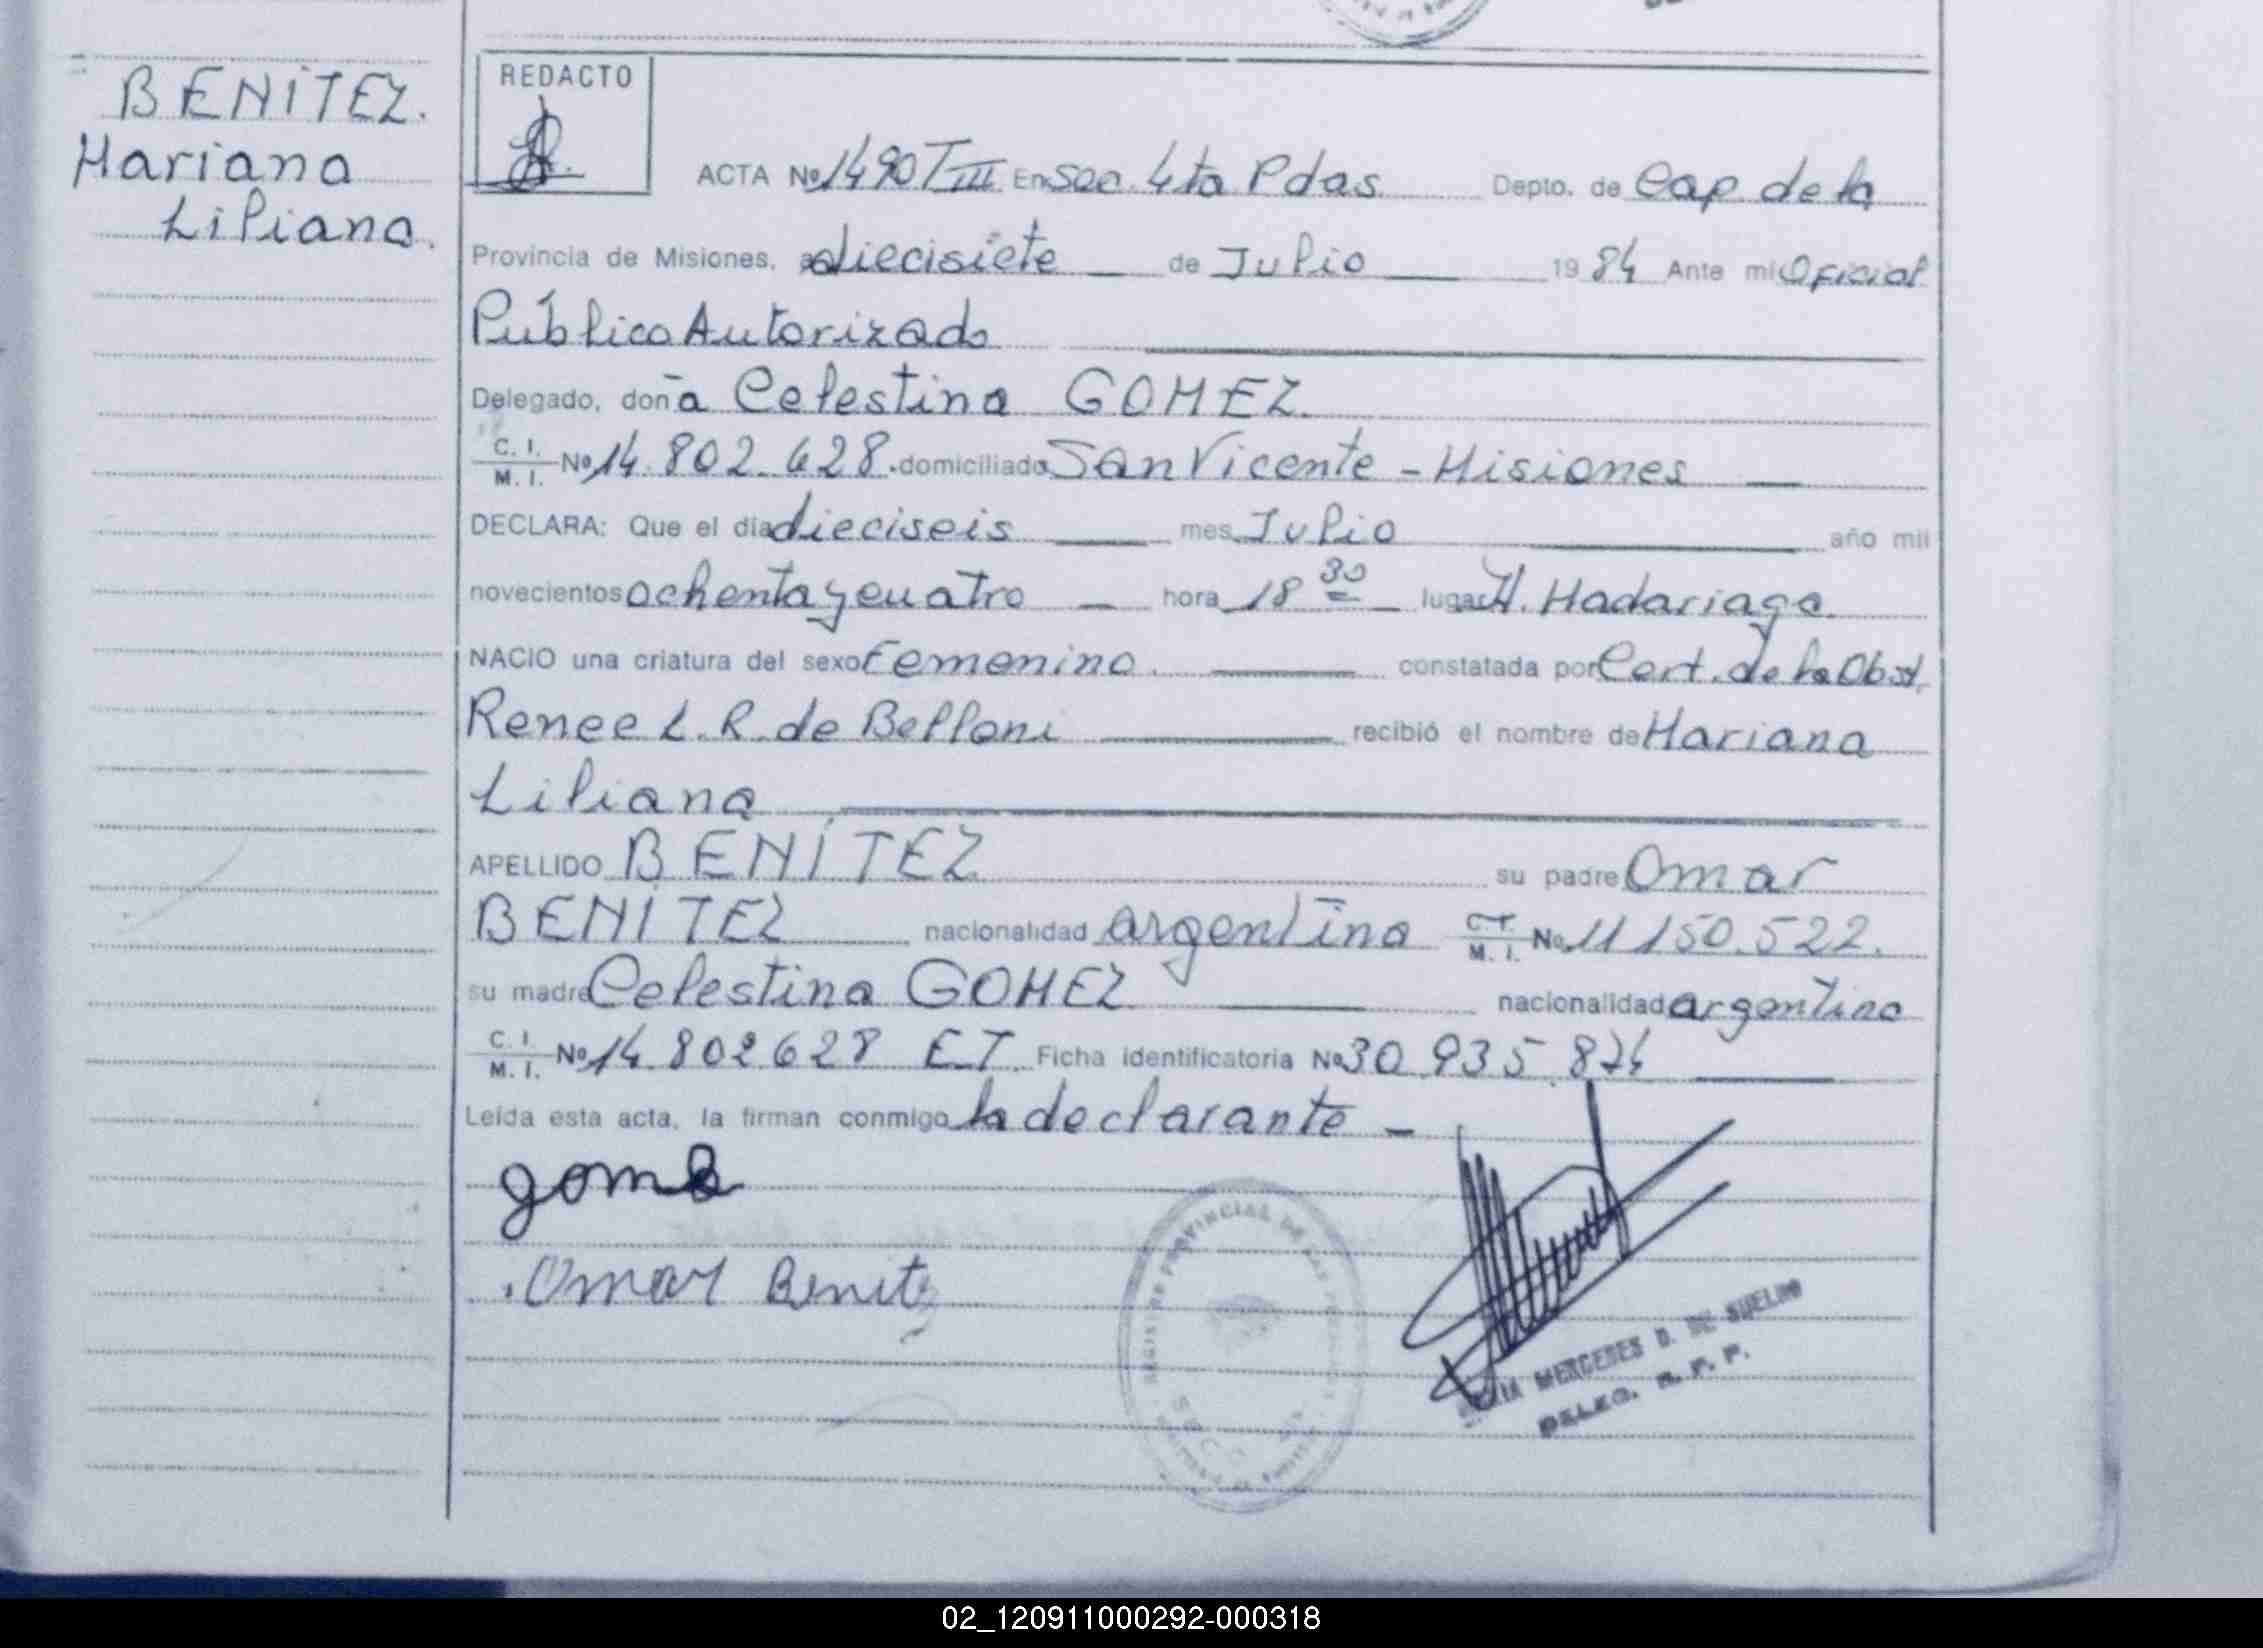 BENÍTEZ.
Mariana
Liliana.
REDACTO
ACTA Nº 1490 T III En Sec. 4ta Pdas. Depto. de Cap. de la
Provincia de Misiones, a diecisiete de Julio 1984 Ante mi Oficial
Público Autorizado
Delegado, doña Celestina GOMEZ.
C. I.
M. I. Nº 14.802.628. domiciliado San Vicente - Misiones
DECLARA: Que el día dieciseis mes Julio año mil
novecientos ochenta y cuatro hora 18 30 lugar H. Madariaga.
NACIO una criatura del sexo Femenino. constatada por Cert. de la Obst.
Renee L. R. de Belloni recibió el nombre de Mariana
Liliana
APELLIDO BENÍTEZ su padre Omar
BENÍTEZ nacionalidad argentina C. I.
M. I. Nº 11.150.522.
su madre Celestina GOMEZ nacionalidad argentina
C. I.
M. I. Nº 14.802628 Ficha identificatoria Nº 30.935.874
Leída esta acta, la firman conmigo la declarante -
Omar Benitz
REGISTRO PROVINCIAL DE LAS
MERCEDES D. DE
DELEG. R. P. P.
02_120911000292-000318